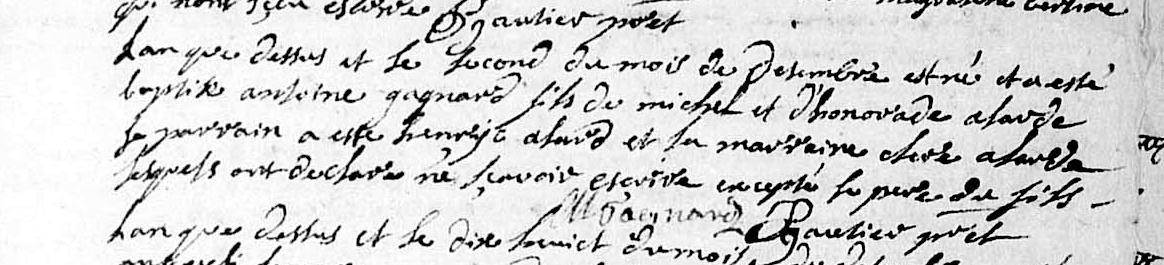 qui nont sçeu escrire
Gautier pbr̃e
Lan que dessus et le second du mois de Desembre est né et a esté
baptise antoine gagnard fils de michel et d'honorade alarde
le parrain a esté henry alard et la marraine clere alarde
lesquels ont declare ne sçavoir escrire excepté le pere du fils –
M Gagnard Gautier
Lan que dessus et le dix huict du mois